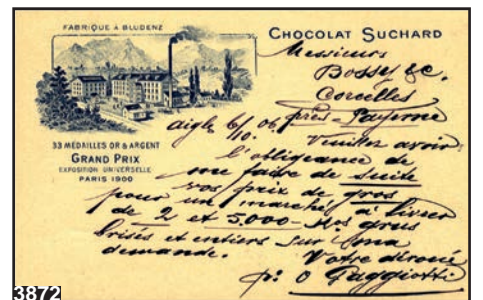 FABRIQUE À BLUDENZ
CHOCOLAT SUCHARD
33 MÉDAILLES OR & ARGENT
GRAND PRIX
EXPOSITION UNIVERSELLE
PARIS 1900
Messieurs
Bossy &c.
Corcelles
près-Payerne
Aigle 6/10. 06. Veuillez avoir
l'obligeance de
me faire de suite
vos prix de gros
pour un marché à livrer
de 2 et 5.000 Kos grus
brisés et entiers sur ma
demande.
Votre dévoué
p: O Gaggiotti
3872